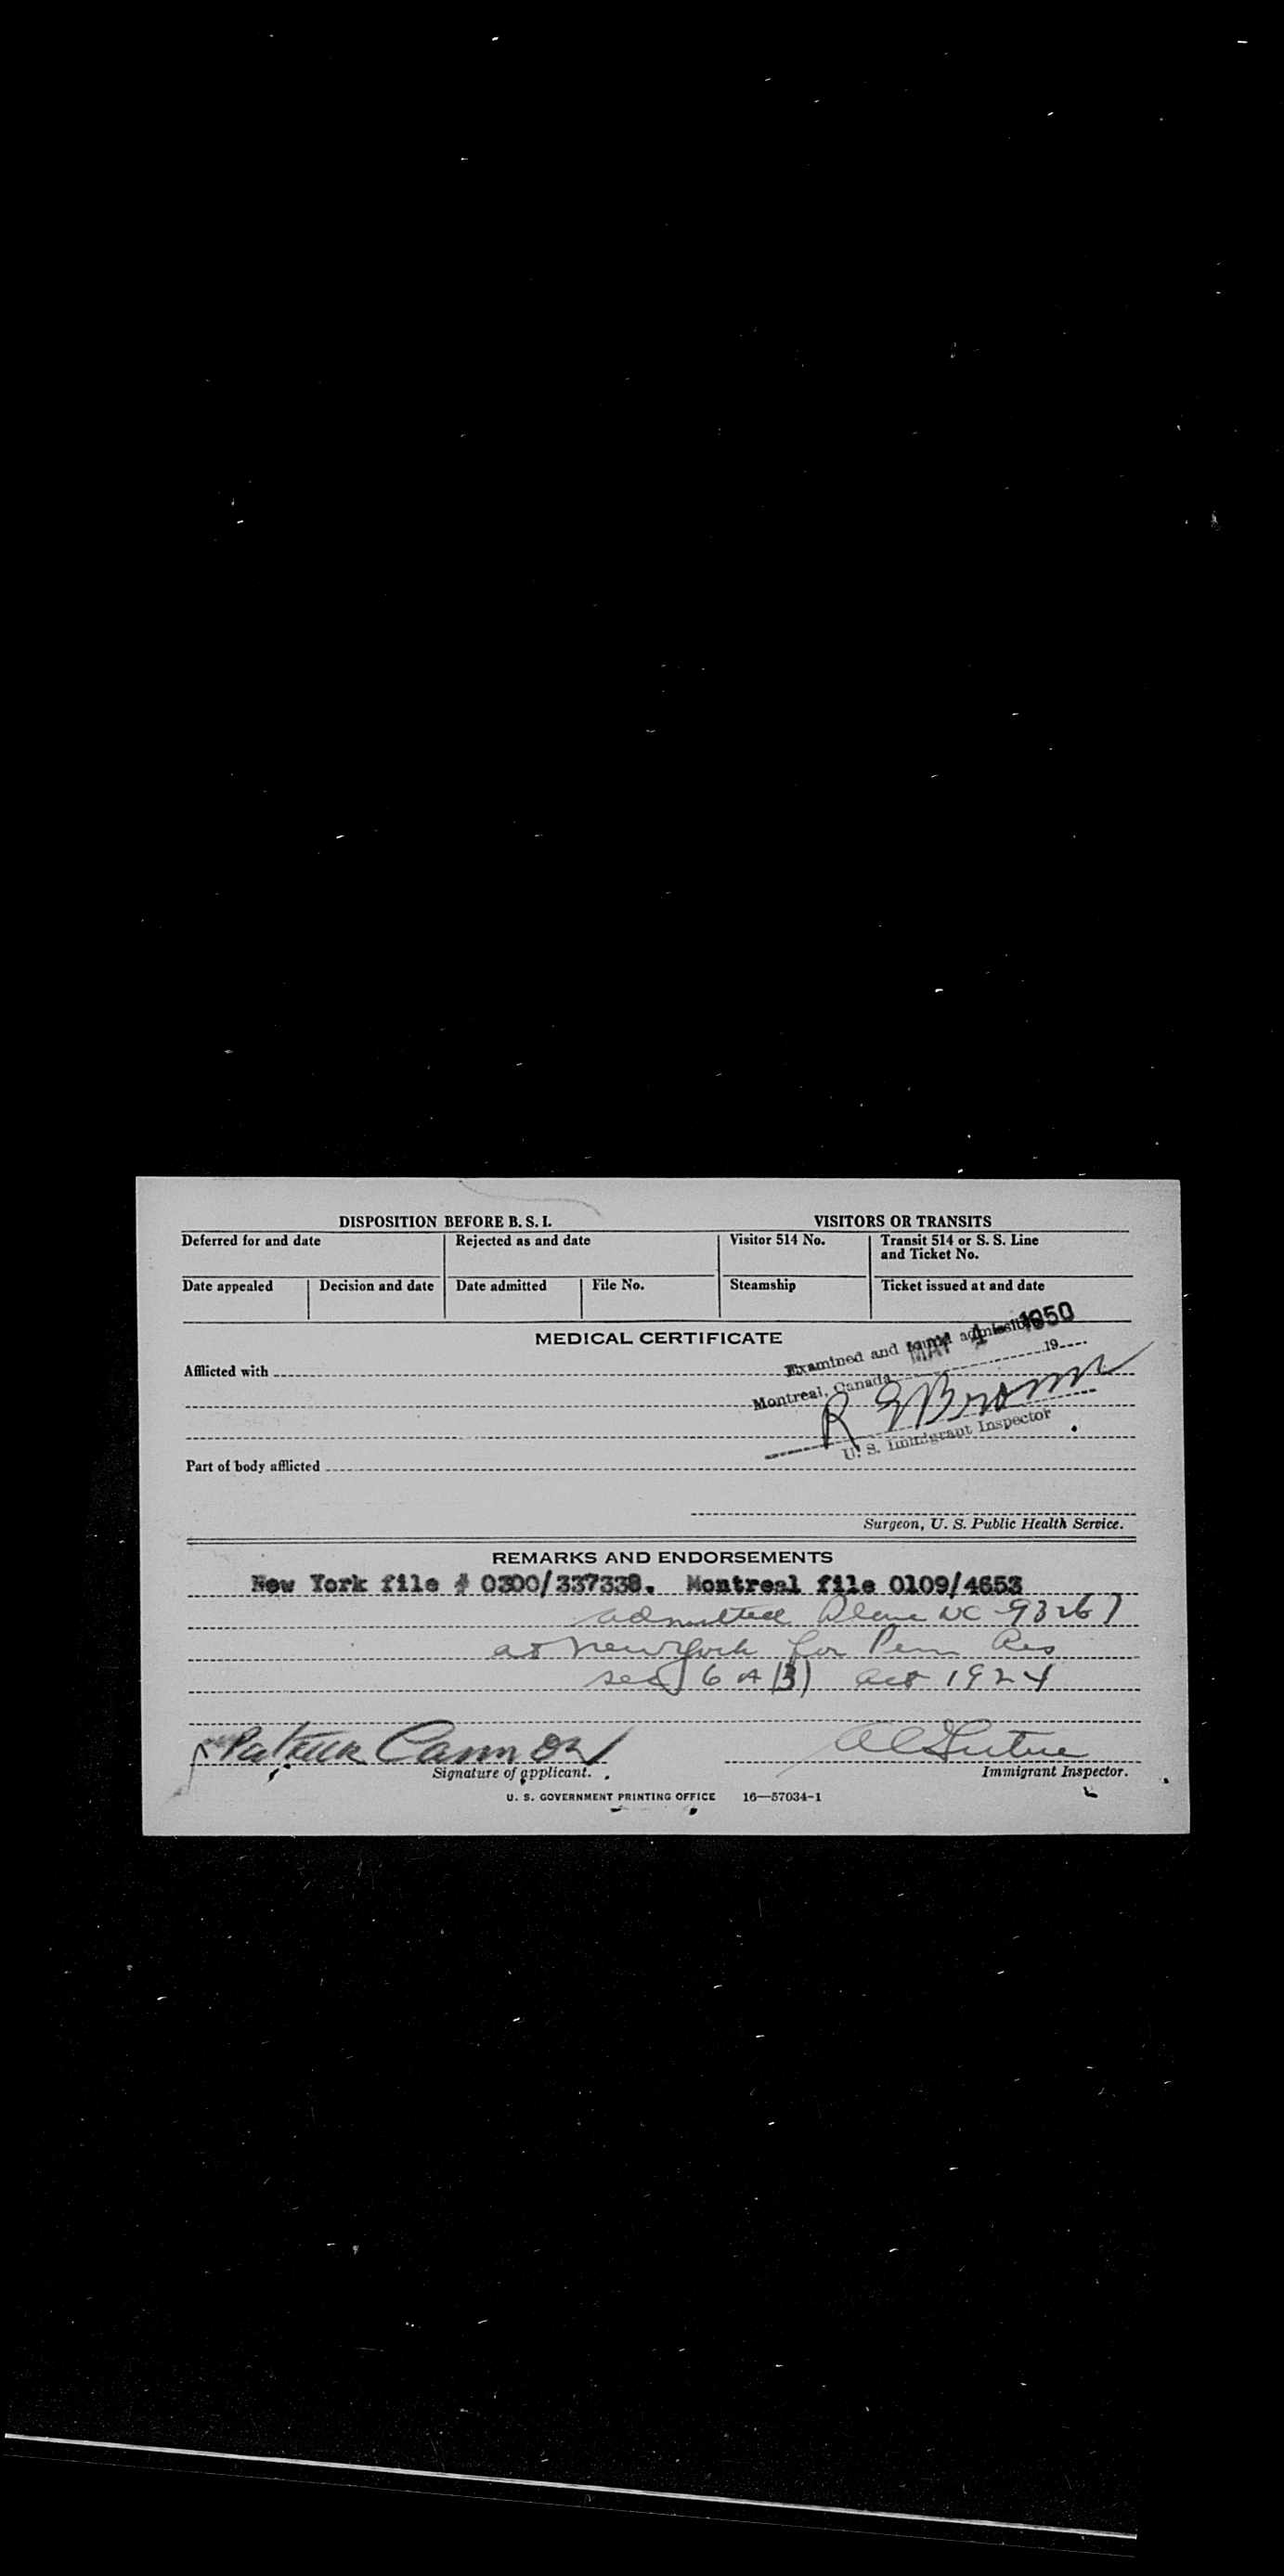 DISPOSITION BEFORE B. S. I.
VISITORS OR TRANSITS
Deferred for and date
Rejected as and date
Visitor 514 No.
Transit 514 or S. S. Line
and Ticket No.
Date appealed
Decision and date
Date admitted
File No.
Steamship
Ticket issued at and date
MEDICAL CERTIFICATE
Examined and found admissible
MAY 1 1950
Afflicted with
Montreal, Canada 19
R E Brown
U. S. Immigrant Inspector
Part of body afflicted
Surgeon, U. S. Public Health Service.
REMARKS AND ENDORSEMENTS
New York file # 0300/337338. Montreal file 0109/4653
admitted Plane NC-93267
at New York for Perm Res
sec 6 A (3) act 1924
Patrick Cannon
Signature of applicant.
Immigrant Inspector.
U. S. GOVERNMENT PRINTING OFFICE 16—57034-1